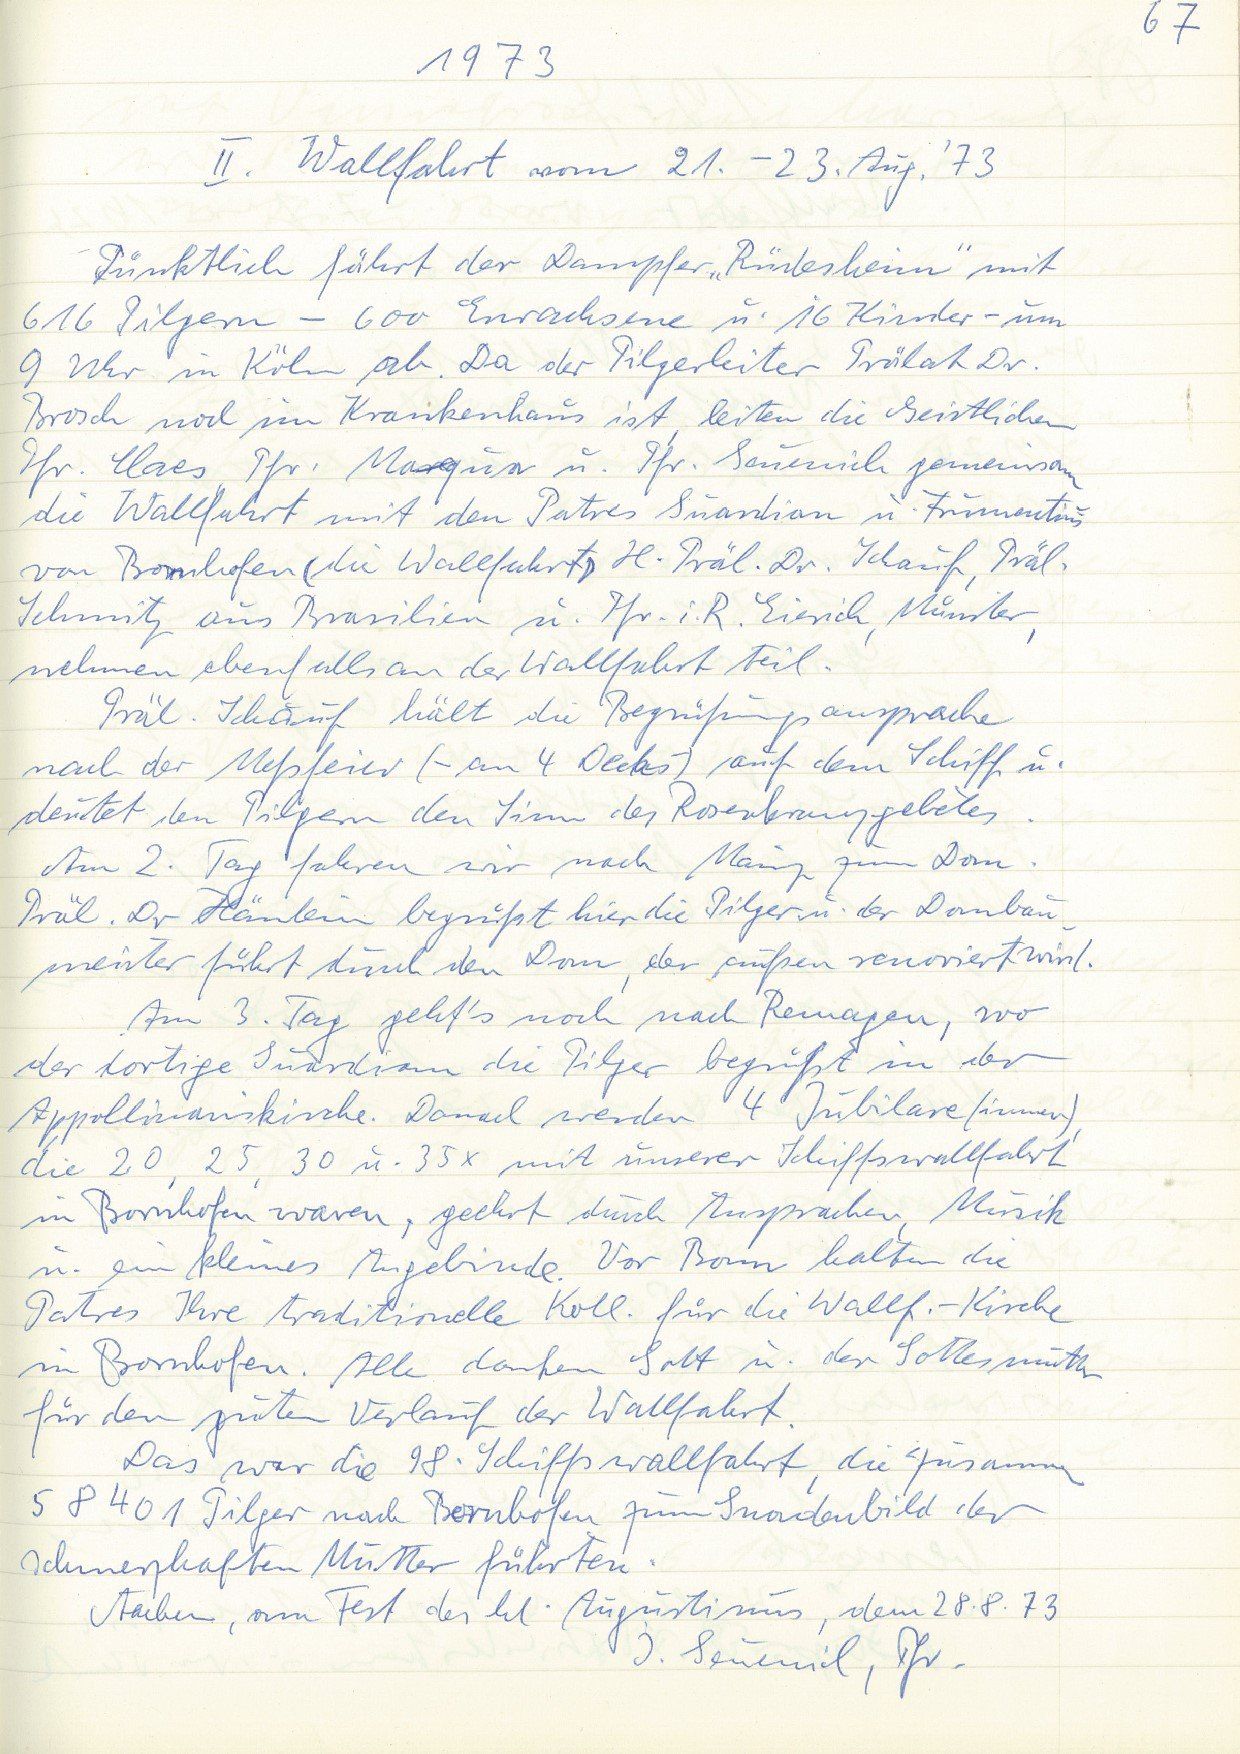 67
1973
II. Wallfahrt vom 21.-23. Aug. '73
Pünktlich fährt der Dampfer „Rüdesheim" mit
616 Pilgern - 600 Erwachsene u. 16 Kinder - um
9 Uhr in Köln ab. Da der Pilgerleiter Prälat Dr.
Brosch noch im Krankenhaus ist, leiten die Geistlichen
Pfr. Claes, Pfr. u. Pfr. Seuerich gemeinsam
die Wallfahrt mit den Patres Guardian u. Frumentius
von Bornhofen (die Wallfahrt) H. Präl. Dr. Schauf, Präl.
Schmitz aus Brasilien u. Pfr. i. R. Münster,
nehmen ebenfalls an der Wallfahrt teil.
Präl. Schauf hält die Begrüßungsansprache
nach der Meßfeier (- an 4 Decks) auf dem Schiff u.
deutet den Pilgern den Sinn des Rosenkranzgebetes.
Am 2. Tag fahren wir nach Mainz zum Dom.
Präl. Dr begrüßt hier die Pilger u. der Dombau
meister führt durch den Dom, der außen renoviert wird.
Am 3. Tag geht's noch nach Remagen, wo
der dortige Guardian die Pilger begrüßt in der
Appollinariskirche. Danach werden 4 Jubilare (innen),
die 20, 25, 30 u. 35x mit unserer Schiffswallfahrt
in Bornhofen waren, geehrt durch Ansprachen, Musik
u. ein kleines Angebinde. Vor Bonn halten die
Patres Ihre traditionelle Koll. für die Wallf.-Kirche
in Bornhofen. Alle danken Gott u. der Gottesmutter
für den guten Verlauf der Wallfahrt.
Das war die 98. Schiffswallfahrt, die zusammen
58401 Pilger nach Bornhofen zum Gnadenbild der
schmerzhaften Mutter führten.
Aachen, am Fest des hl. Augustinus, dem 28.8.73
J. Seuerich, Pfr.